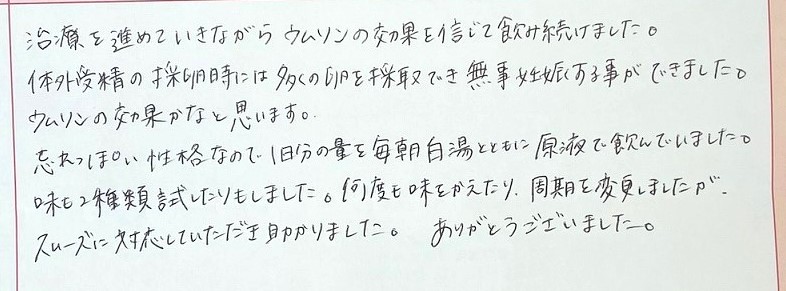 治療を進めていきながらウムリンの効果を信じて飲み続けました。
体外受精の採卵時には多くの卵を採取でき無事妊娠する事ができました。
ウムリンの効果かなと思います。
忘れっぽい性格なので1日分の量を毎朝白湯とともに原液で飲んでいました。
味も2種類試したりもしました。何度も味をかえたり、周期を変更しましたが、
スムーズに対応していただき助かりました。 ありがとうございました。